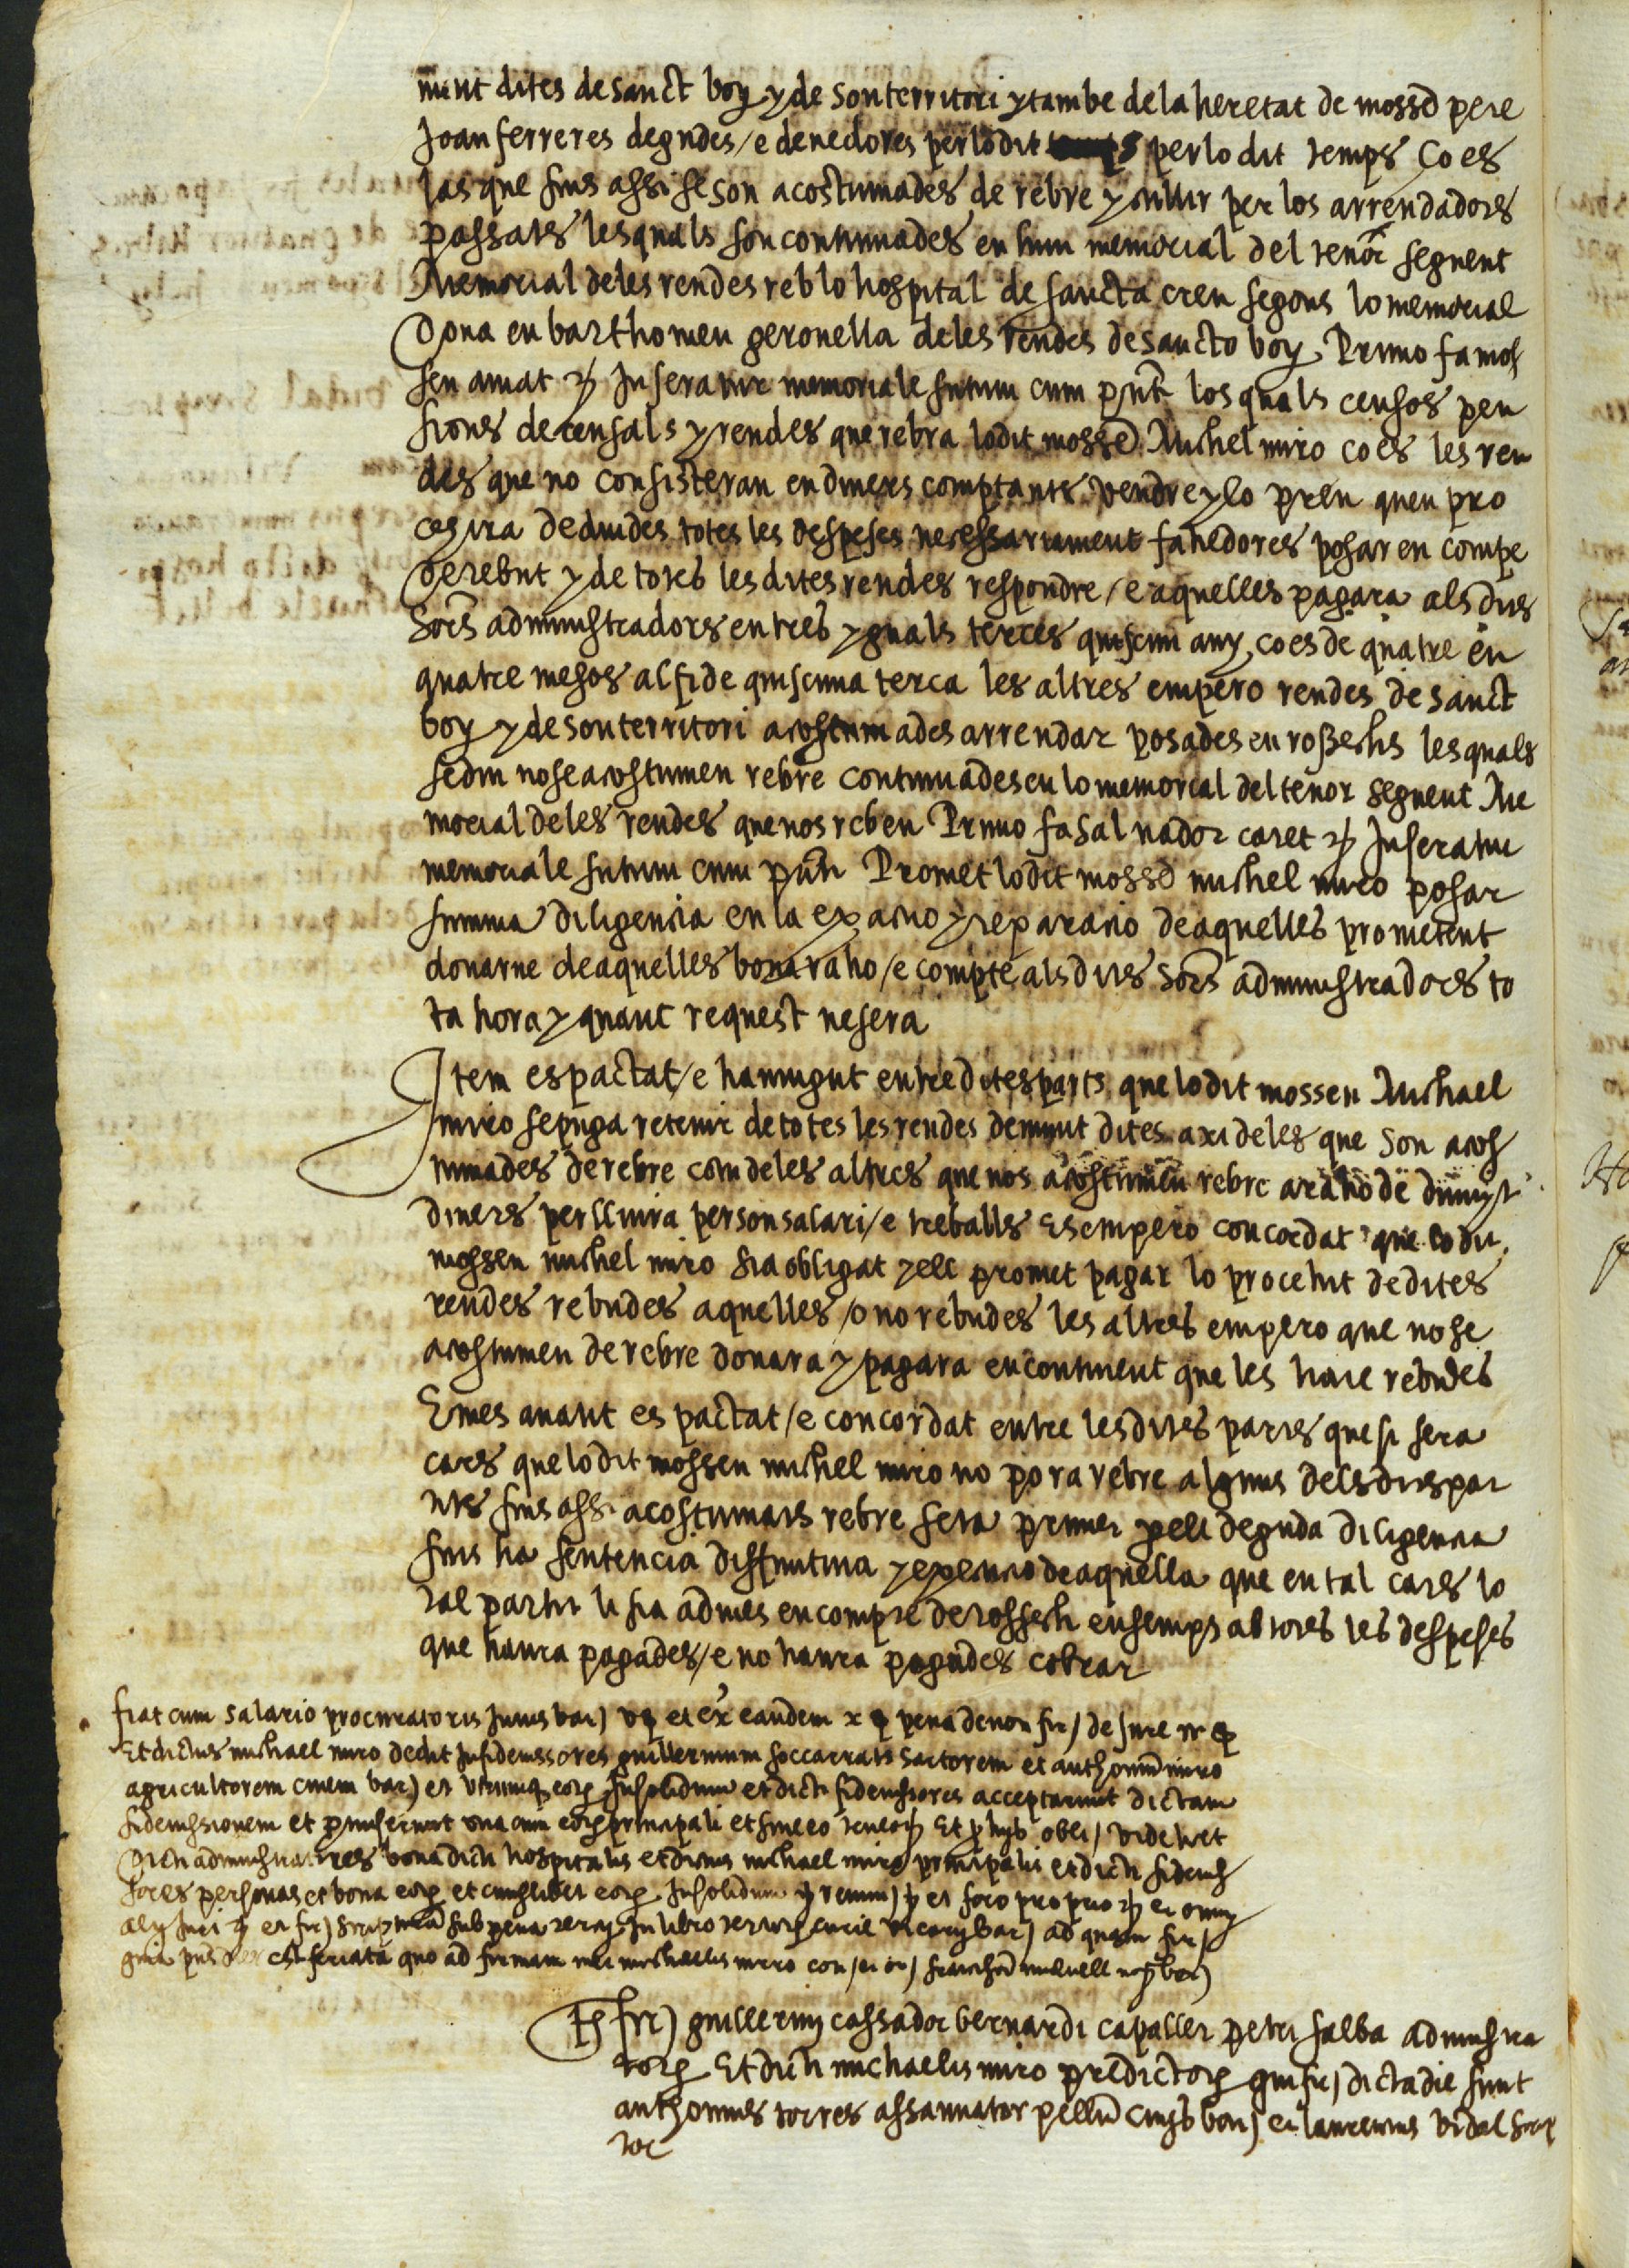 munt dites de sanct boy y de son territori y tambe de la heretat de mossen pere
Joan ferreres degudes / e devedores per lo dit per lo dit temps Ço es
las que fins assi se son acostumades de rebre y cullir per los arrendadors
passats les quals son continuades en hun memorial del tenor seguent
Memorial de les rendes reb lo hospital de sancta creu segons lo memorial
dona en barthomeu geronella de les rendes de sancto boy. Primo fa mos
sen amat Inseratur memoriale sutum cum los quals censos pen
sions de censals y rendes que rebra lo dit mossen Michel miro ço es les ren
des que no consisteran en diners comptants vendre y lo preu queu pro
cezira deduides totes les despeses necessariament fahedores posar en compte
de rebut y de totes les dites rendes respondre / e aquelles pagara als dits
Sors administradors en tres yguals terces quiscun any, ço es de quatre en
quatre mesos al fi de quiscuna terca les altres empero rendes de sanct
boy y de son territori acostumades arrendar posades en rossechs les quals
se diu no se acostumen rebre continuades en lo memorial del tenor seguent Me
morial de les rendes que nos reben Primo fa salvador caret Inseratur
memoriale sutum cum Promet lo dit mossen michel miro posar
summa diligencia en la exactio y reparatio de aquelles prometent
donarne de aquelles bona raho / e compte als dits Sors administradors to
ta hora y quant request ne sera
Item es pactat / e hauingut entre dites parts que lo dit mossen Michael
miro se puga retenir de totes les rendes demunt dites axi de les que son acos
tumades de rebre com de les altres que nos acostumen rebre a raho de
diners per lliura per son salari / e treballs Es empero concordat que lo dit
mossen michel miro sia obligat y ell promet pagar lo procehit de dites
rendes rebudes aquelles / o no rebudes les altres empero que no se
acostumen de rebre donara y pagara encontinent que les haie rebudes
E mes auant es pactat / e concordat entre les dites parts que si sera
cars que lo dit mossen michel miro no pora rebre alguns dels dits par
tits fins assi acostumats rebre feta primer per ell deguda diligencia
fins ha sentencia diffinitiua y exequcio de aquella que en tal cars lo
tal partit li sia admes en compte de rossech ensemps ab totes les despeses
que haura pagades / e no haura pogudes cobrar
fiat cum salario procuratoris Intus bar) et ex eandem x pena de non fir) de jure
Et dictus michael miro dedit In fideiussores guillermum soccarrats sartorem et anthonium miro
agricultorem civem bar) et utrumque eorum Insolidum et dicti fideiussores acceptarunt dictam
fideiussionem et promiserunt una cum eorum principali et sine eo Et obli) videlicet
Dicti administratores bona dicti hospitalis et dictus michael miro principalis et dicti fideius
sores personas et bona eorum et cuiuslibet eorum Insolidum et foro proprio
et fir) sub pena In libro curie vicarij bar) ad
est feriata quo ad firmam mei michaelis miro
fir) guillermi cassador bernardi capaller petri salba administra
torum Et dicti michaelis miro predictorum qui fir) dicta die sunt
anthonius torres assaunator pellium civis bar) et laurentius vidal scrip
tor